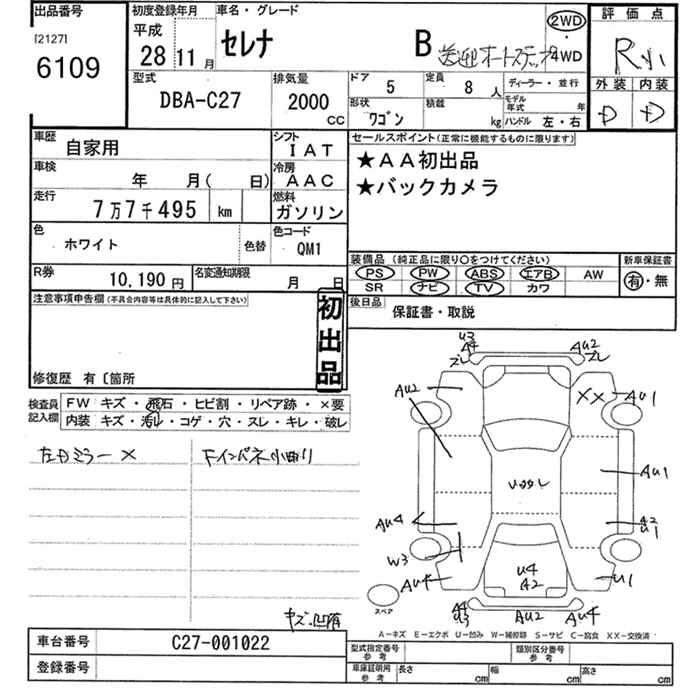 出品番号
[2127]
6109
初度登録年月
平成
28 11 月
車名・グレード
セレナ B 送迎 オートステップ
2WD
・
4WD
評価点
R小
外装 内装
D D
型式
DBA-C27
排気量
2000
cc
ドア 5
定員 8 人
ディーラー・並行
形状 ワゴン
積載 kg
モデル年式 年
ハンドル 左・右
車歴 自家用
シフト IAT
車検 年 月( 日)
冷房 AAC
走行 7万7千495 km
燃料 ガソリン
色 ホワイト
色替
色コード QM1
R券 10,190 円
名変通知期限 月 日
セールスポイント(正常に機能するものに限ります)
★AA初出品
★バックカメラ
装備品 (純正品に限り○をつけてください)
PS PW ABS エアB AW
SR ナビ TV カワ
新車保証書
有・無
後日品 保証書・取説
注意事項申告欄(不具合内容等は具体的に記入して下さい)
初出品
修復歴 有〔箇所
検査員記入欄
FW キズ・飛石・ヒビ割・リペア跡・×要
内装 キズ・汚レ・コゲ・穴・スレ・キレ・破レ
左カミラー ×
Fインパネ小曲り
キズ、凹有
U3
A4
ズレ
AU2
ズレ
AU2
XX
AU1
AU1
AU4
A2
U1
W3
AU4
U4
A2
U1
スペア
A4
U3
AU2
AU4
A-キズ E-エクボ U-凹み W-補修跡 S-サビ C-腐食 XX-交換済
車台番号 C27-001022
登録番号
型式指定番号
参考
類別区分番号
参考
車庫証明用
参考
長さ cm
幅 cm
高さ cm